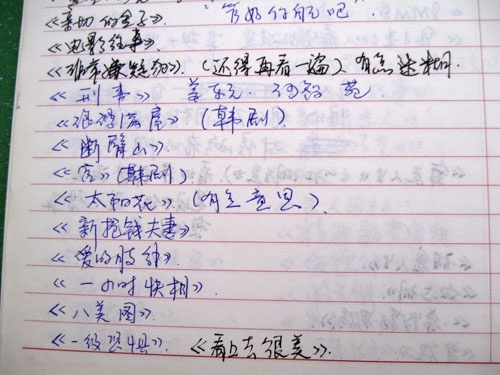 《亲切的金子》
《电影往事》
《非常嫌疑犯》. (还得再看一遍)、有点迷糊.
《刑事》. 姜东元 河智苑
《浪漫满屋》 (韩剧)
《断臂山》.
《宫》 (韩剧)
(有点意思).
《新抢钱夫妻》
《爱的
《一小时快相》.
《八美图》.
《一级恐惧》. 《看上去很美》.